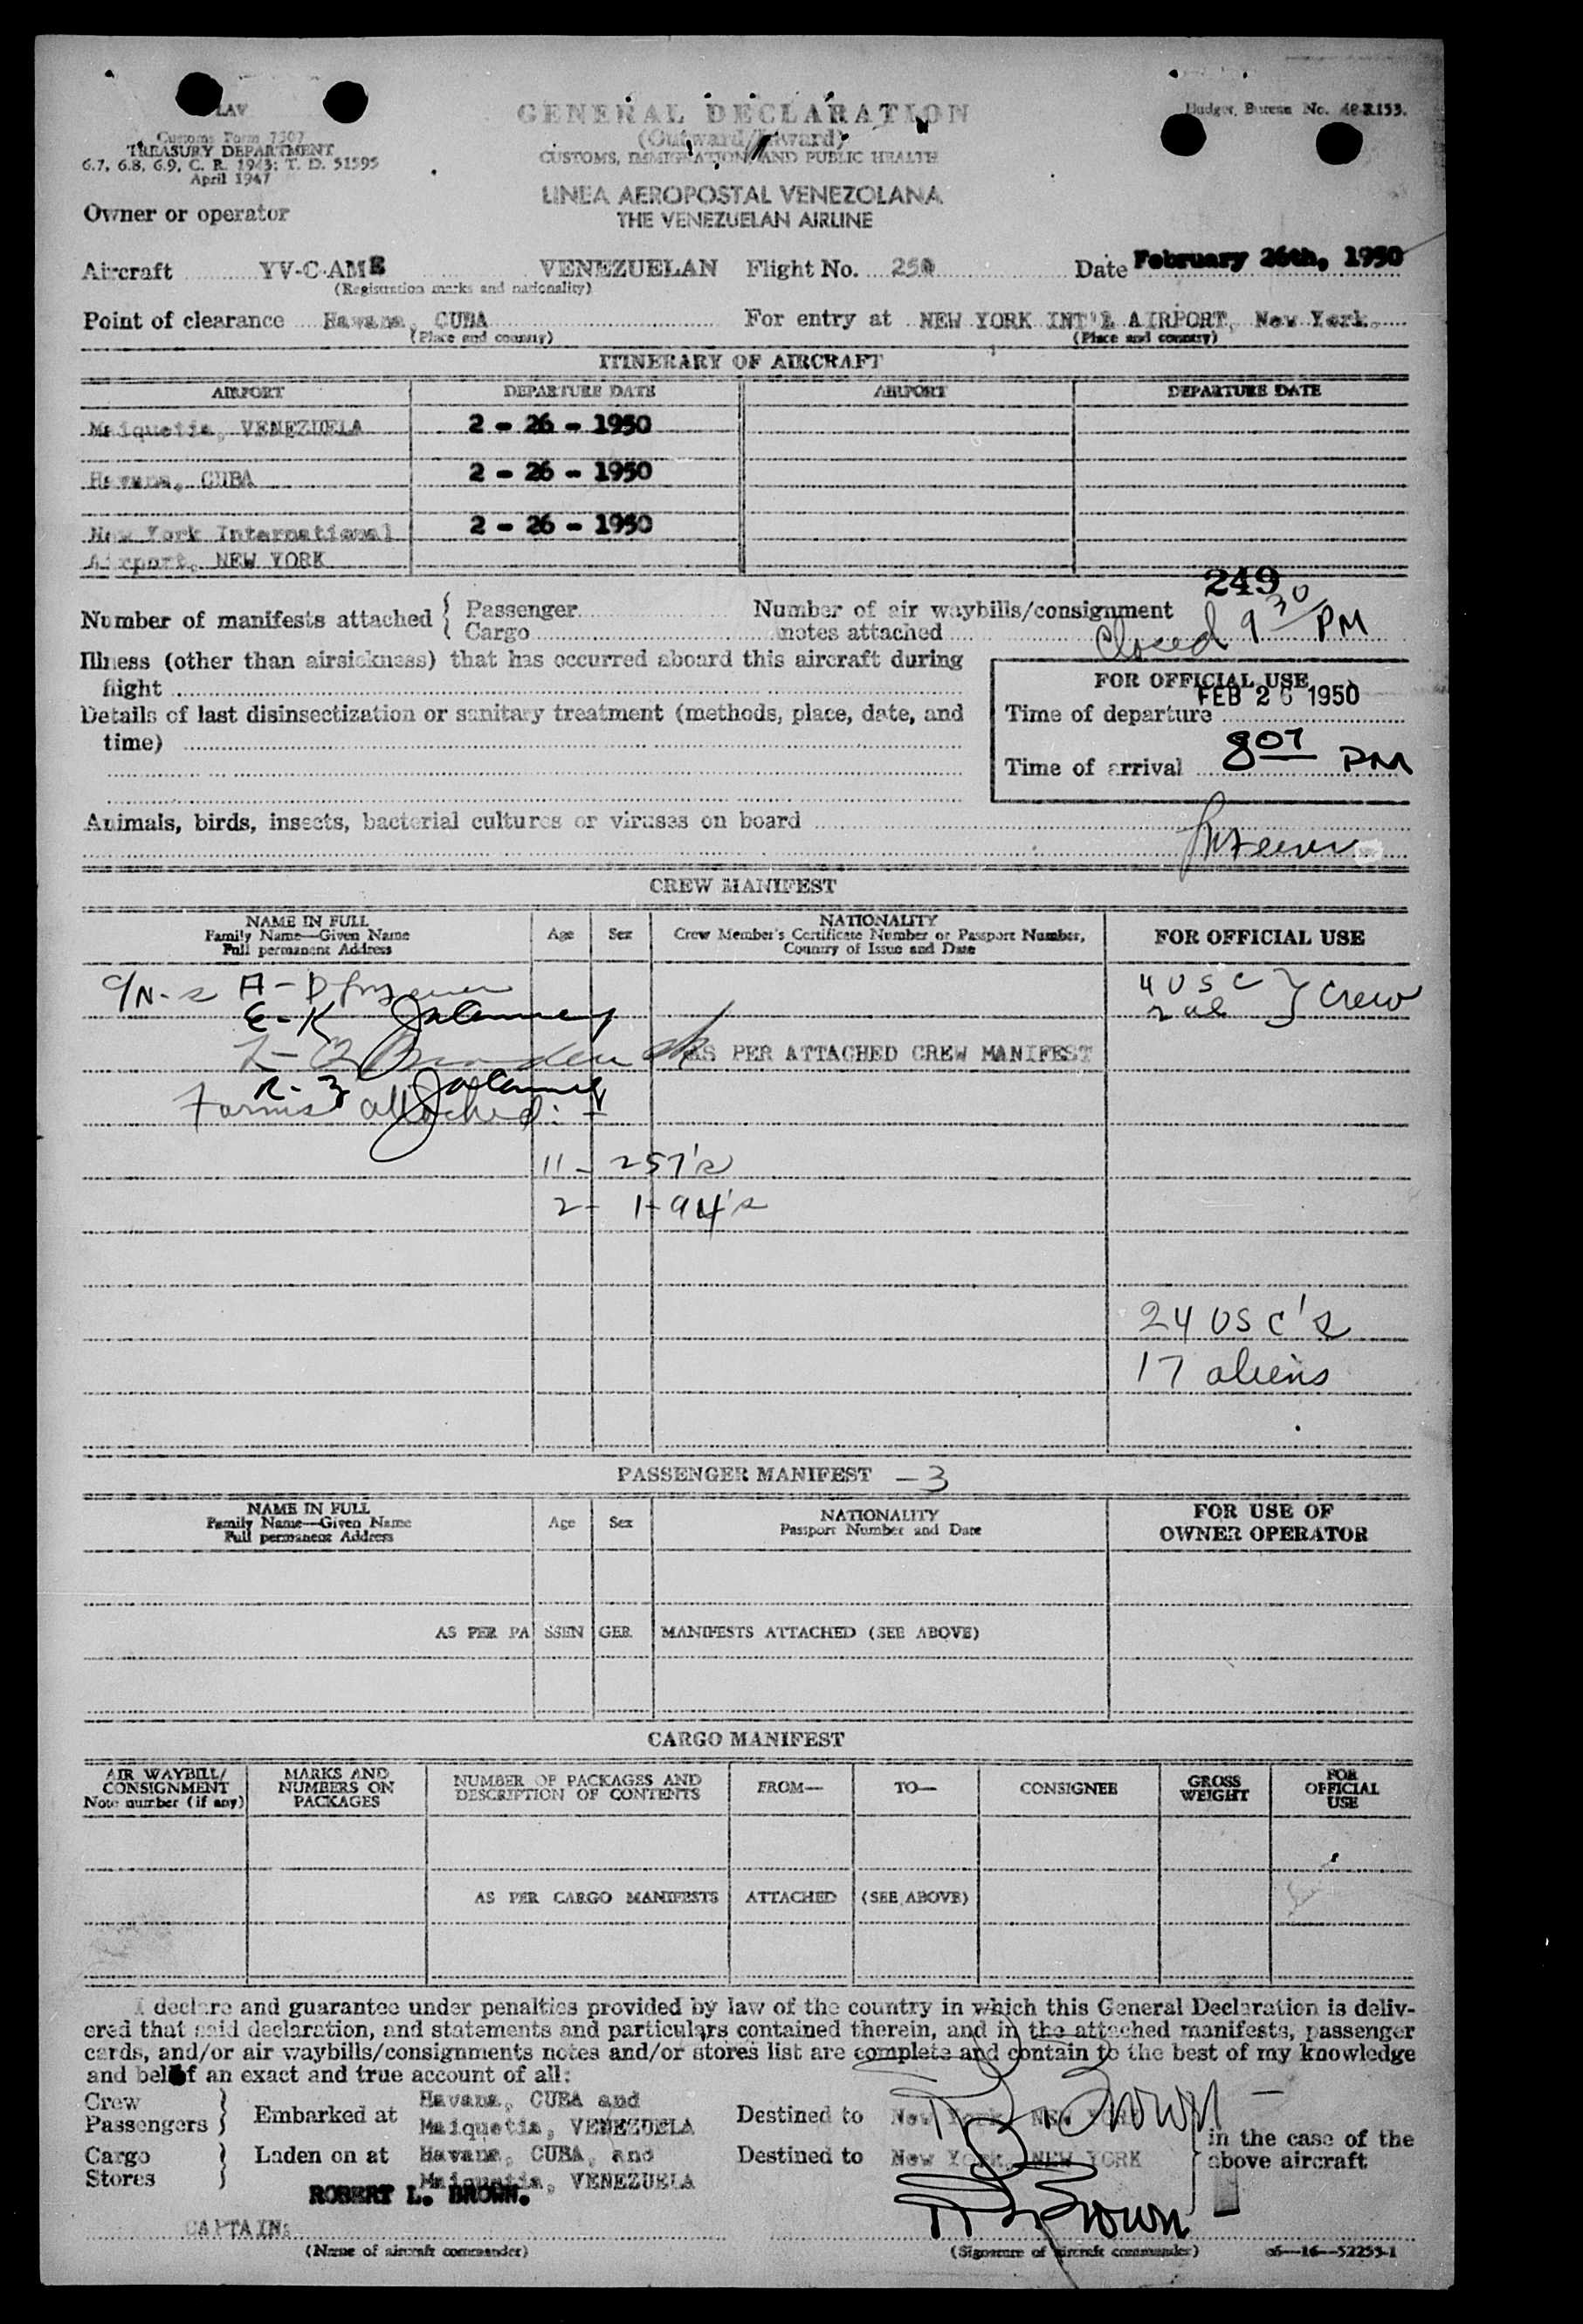 LAV
Customs Form 7507
TREASURY DEPARTMENT
6.7, 6.8, 6.9, C. R. 1943; T. D. 51595
April 1947
GENERAL DECLARATION
(Outward/Inward)
CUSTOMS, IMMIGRATION, AND PUBLIC HEALTH
Budget Bureau No. 48-R153.
LINEA AEROPOSTAL VENEZOLANA
THE VENEZUELAN AIRLINE
Owner or operator
Aircraft YV-C-AME VENEZUELAN Flight No. 250 Date February 26th, 1950
(Registration marks and nationality)
Point of clearance Havana, CUBA For entry at NEW YORK INT'L AIRPORT, New York.
(Place and country) (Place and country)
ITINERARY OF AIRCRAFT
AIRPORT DEPARTURE DATE AIRPORT DEPARTURE DATE
Maiquetia, VENEZUELA 2 - 26 - 1950
Havana, CUBA 2 - 26 - 1950
New York International 2 - 26 - 1950
Airport, NEW YORK
249
Number of manifests attached { Passenger Number of air waybills/consignment
Cargo notes attached
Closed 9 30 PM
Illness (other than airsickness) that has occurred aboard this aircraft during
flight
Details of last disinsectization or sanitary treatment (methods, place, date, and
time)
FOR OFFICIAL USE
FEB 26 1950
Time of departure
Time of arrival 8 07 PM
Animals, birds, insects, bacterial cultures or viruses on board
CREW MANIFEST
NAME IN FULL
Family Name—Given Name
Full permanent Address
Age Sex
NATIONALITY
Crew Member's Certificate Number or Passport Number,
Country of Issue and Date
FOR OFFICIAL USE
4 USC } Crew
2 al
A-D
E-K
AS PER ATTACHED CREW MANIFEST
R-Z
Forms attached:
11 - 257's
2 - I-94's
24 USC's
17 aliens
PASSENGER MANIFEST - 3
NAME IN FULL
Family Name—Given Name
Full permanent Address
Age Sex
NATIONALITY
Passport Number and Date
FOR USE OF
OWNER OPERATOR
AS PER PASSENGER MANIFESTS ATTACHED (SEE ABOVE)
CARGO MANIFEST
AIR WAYBILL/
CONSIGNMENT
Note number (if any)
MARKS AND
NUMBERS ON
PACKAGES
NUMBER OF PACKAGES AND
DESCRIPTION OF CONTENTS
FROM—
TO—
CONSIGNEE
GROSS
WEIGHT
FOR
OFFICIAL
USE
AS PER CARGO MANIFESTS ATTACHED (SEE ABOVE)
I declare and guarantee under penalties provided by law of the country in which this General Declaration is deliv-
ered that said declaration, and statements and particulars contained therein, and in the attached manifests, passenger
cards, and/or air waybills/consignments notes and/or stores list are complete and contain to the best of my knowledge
and belief an exact and true account of all:
Crew
Passengers } Embarked at Havana, CUBA and
Maiquetia, VENEZUELA
Destined to New York, NEW YORK
Cargo
Stores } Laden on at Havana, CUBA, and
Maiquetia, VENEZUELA
Destined to New York, NEW YORK
in the case of the
above aircraft
R L Brown
ROBERT L. BROWN.
CAPTAIN:
R L Brown
(Name of aircraft commander)
(Signature of aircraft commander)
16—52255-1